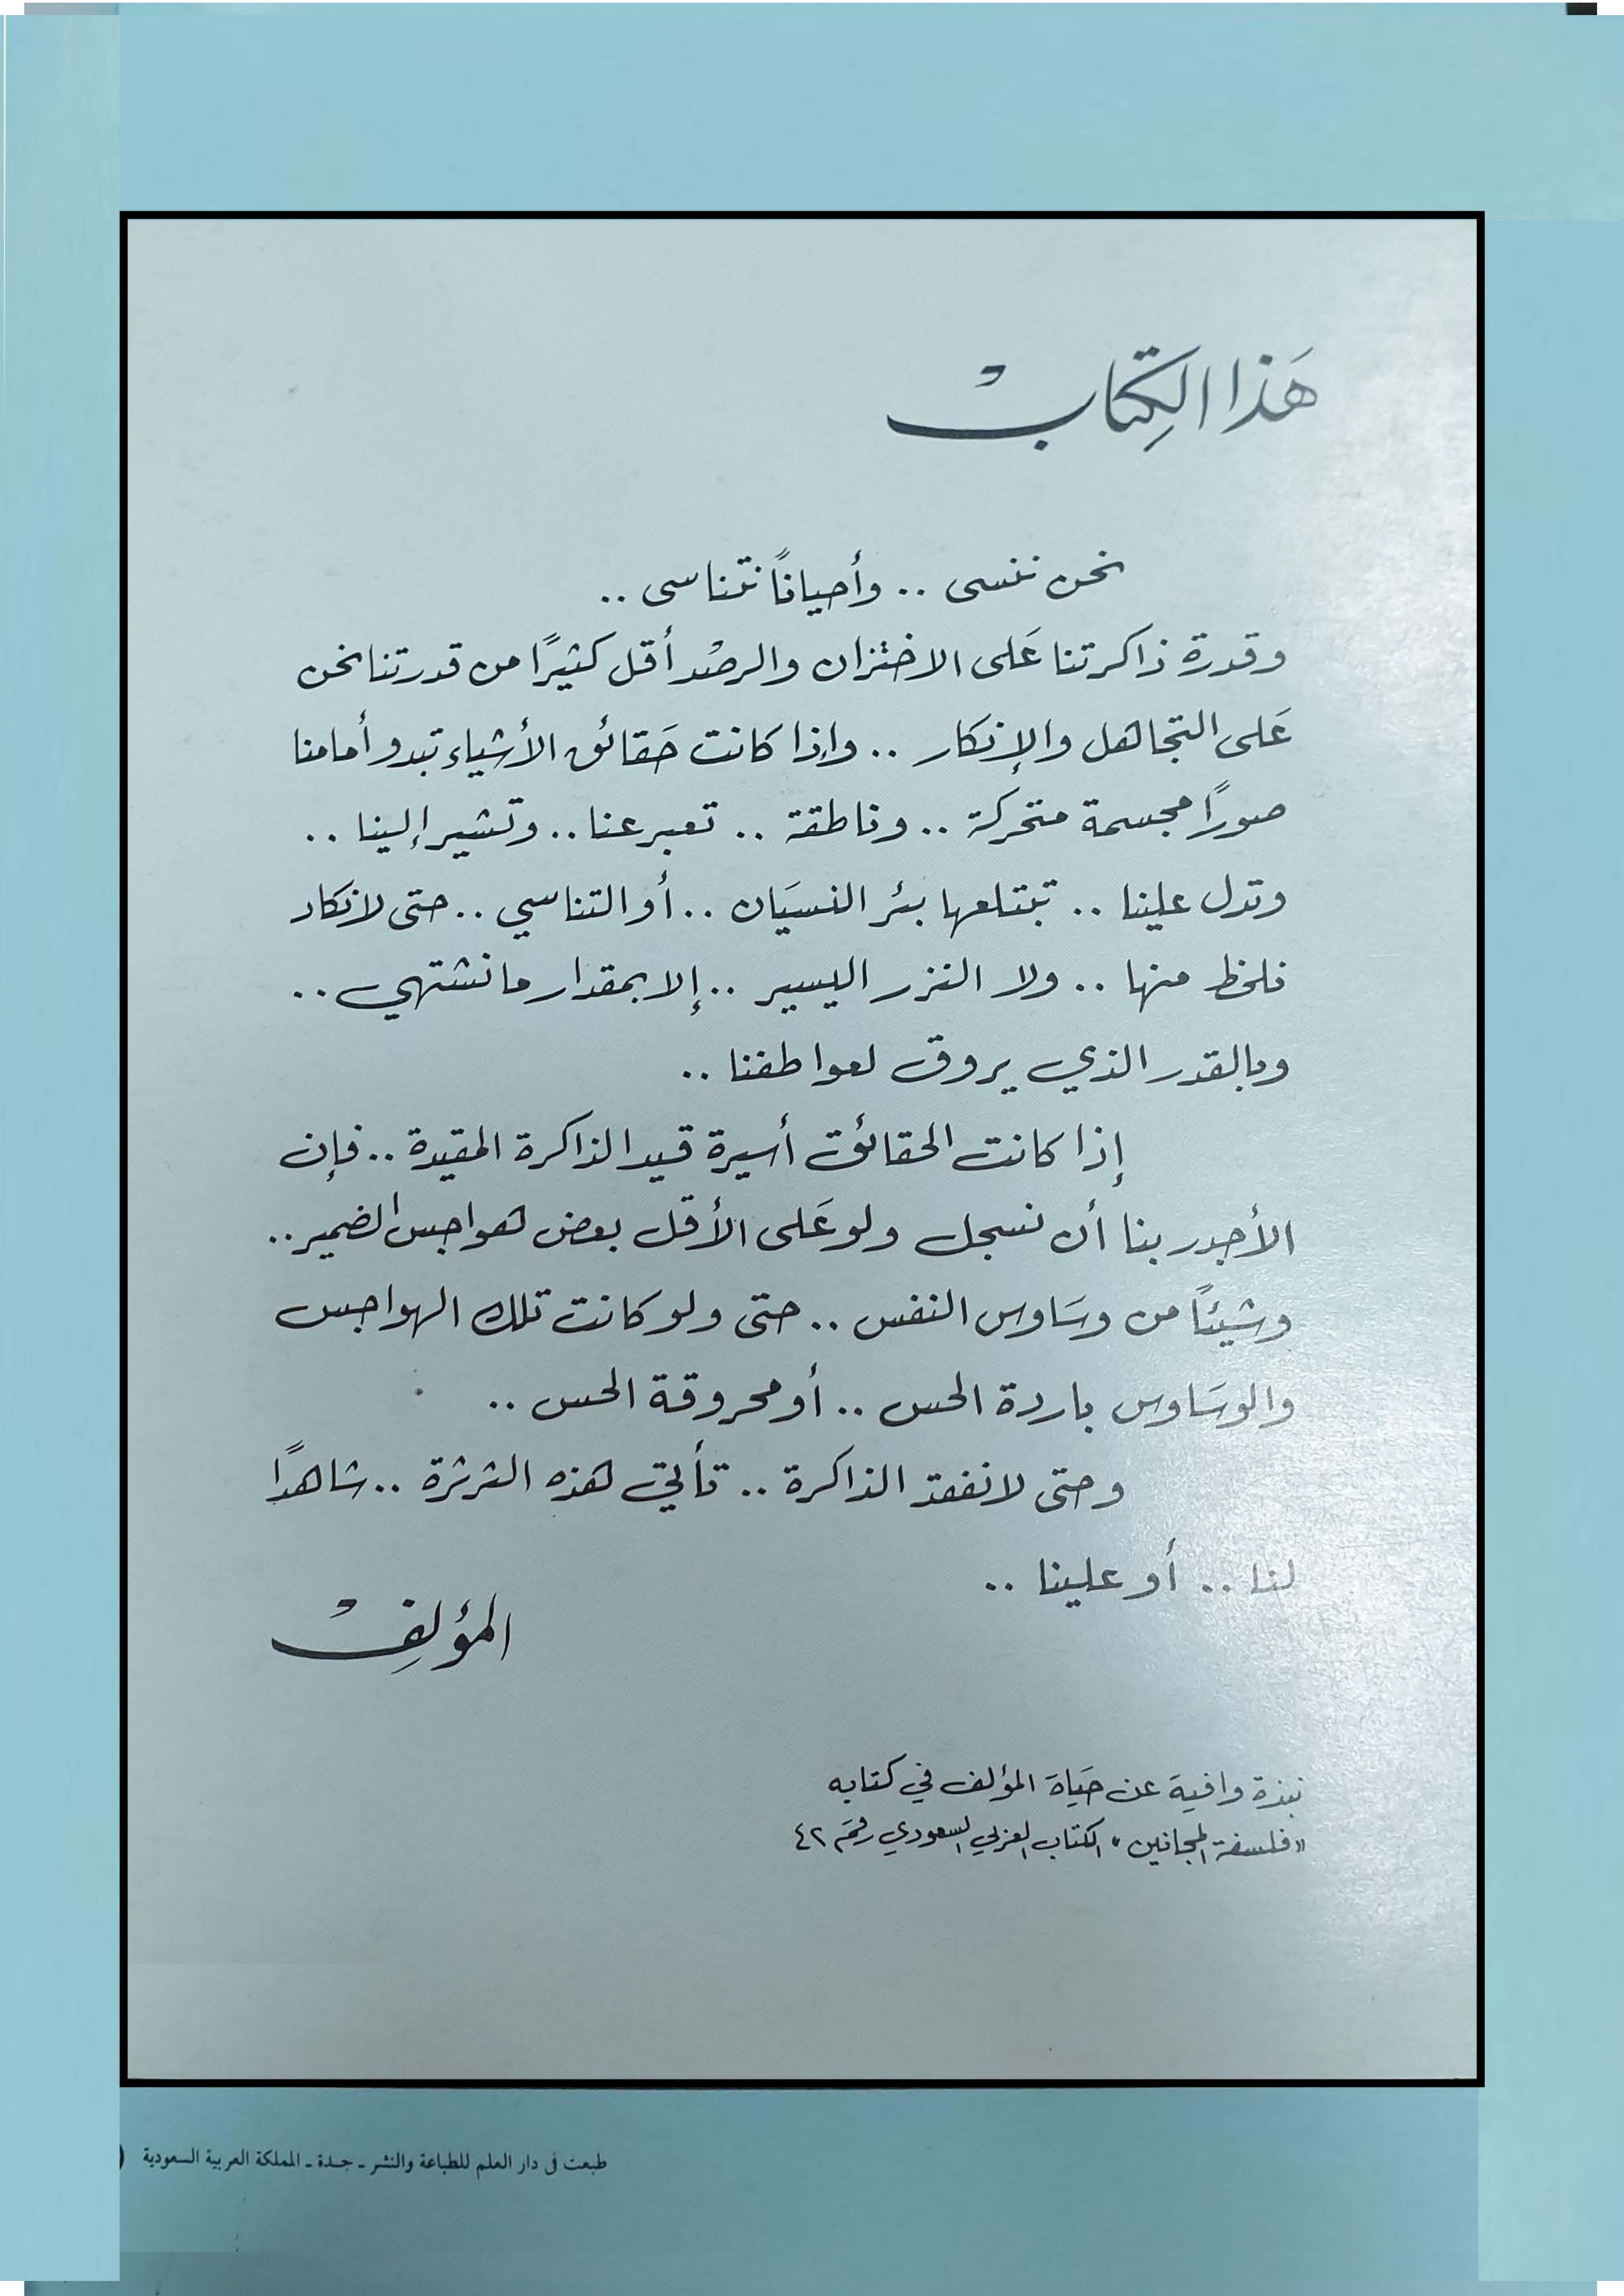 هَذا الكِتابْ
نحن ننسى .. وأحيانًا نتناسى ..
وقدرة ذاكرتنا عَلى الاختزان والرصْد أقل كثيرًا من قدرتنا نحن
عَلى التجاهل والإنكار .. وإذا كانت حَقائق الأشياء تبدو أمامنا
صورًا مجسمة متحركة .. وناطقة .. تعبر عنا .. وتشير إلينا ..
وتدل علينا .. تبتلعها بئر النسيَان .. أو التناسي .. حتى لا نكاد
نلحظ منها .. ولا النزر اليسير .. إلا بمقدار ما نشتهي ..
وبالقدر الذي يروق لعواطفنا ..
إذا كانت الحقائق أسيرة قيد الذاكرة المقيدة .. فإن
الأجدر بنا أن نسجل ولو عَلى الأقل بعض هواجس الضمير ..
وشيئًا من وسَاوس النفس .. حتى ولو كانت تلك الهواجس
والوسَاوس باردة الحس .. أو محروقة الحس ..
وحتى لا نفقد الذاكرة .. تأتي هذه الثرثرة .. شاهدًا
لنا .. أو علينا ..
المؤلِفْ
نبذة وافية عن حَياة المؤلف في كتابه
«فلسفة المجانين» الكتاب العربي السعودي رقم ٤٢
طبعت في دار العلم للطباعة والنشر ـ جـدة ـ المملكة العربية السعودية